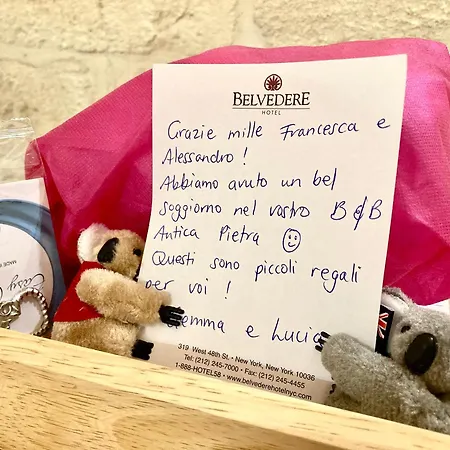 BELVEDERE
HOTEL
Grazie mille Francesca e
Alessandro!
Abbiamo avuto un bel
soggiorno nel vostro B&B
Antica Pietra ☺
Questi sono piccoli regali
per voi!
emma e Lucia
319 West 48th St. • New York, New York 10036
Tel: (212) 245-7000 • Fax: (212) 245-4455
1-888-HOTEL58 • www.belvederehotelnyc.com